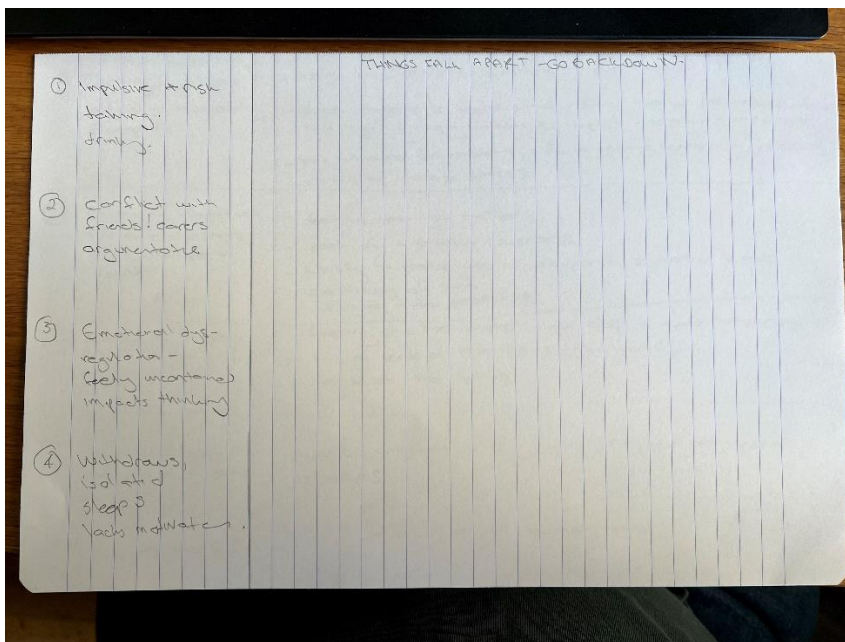 THINGS FALL APART - GO BACK DOWN.
① Impulsive + risk
taking.
drinking.
② Conflict with
friends/carers
argumentative
③ Emotional dys-
regulation -
feeling uncontained
impacts thinking
④ Withdraws,
isolated
sleeps
lacks motivation.